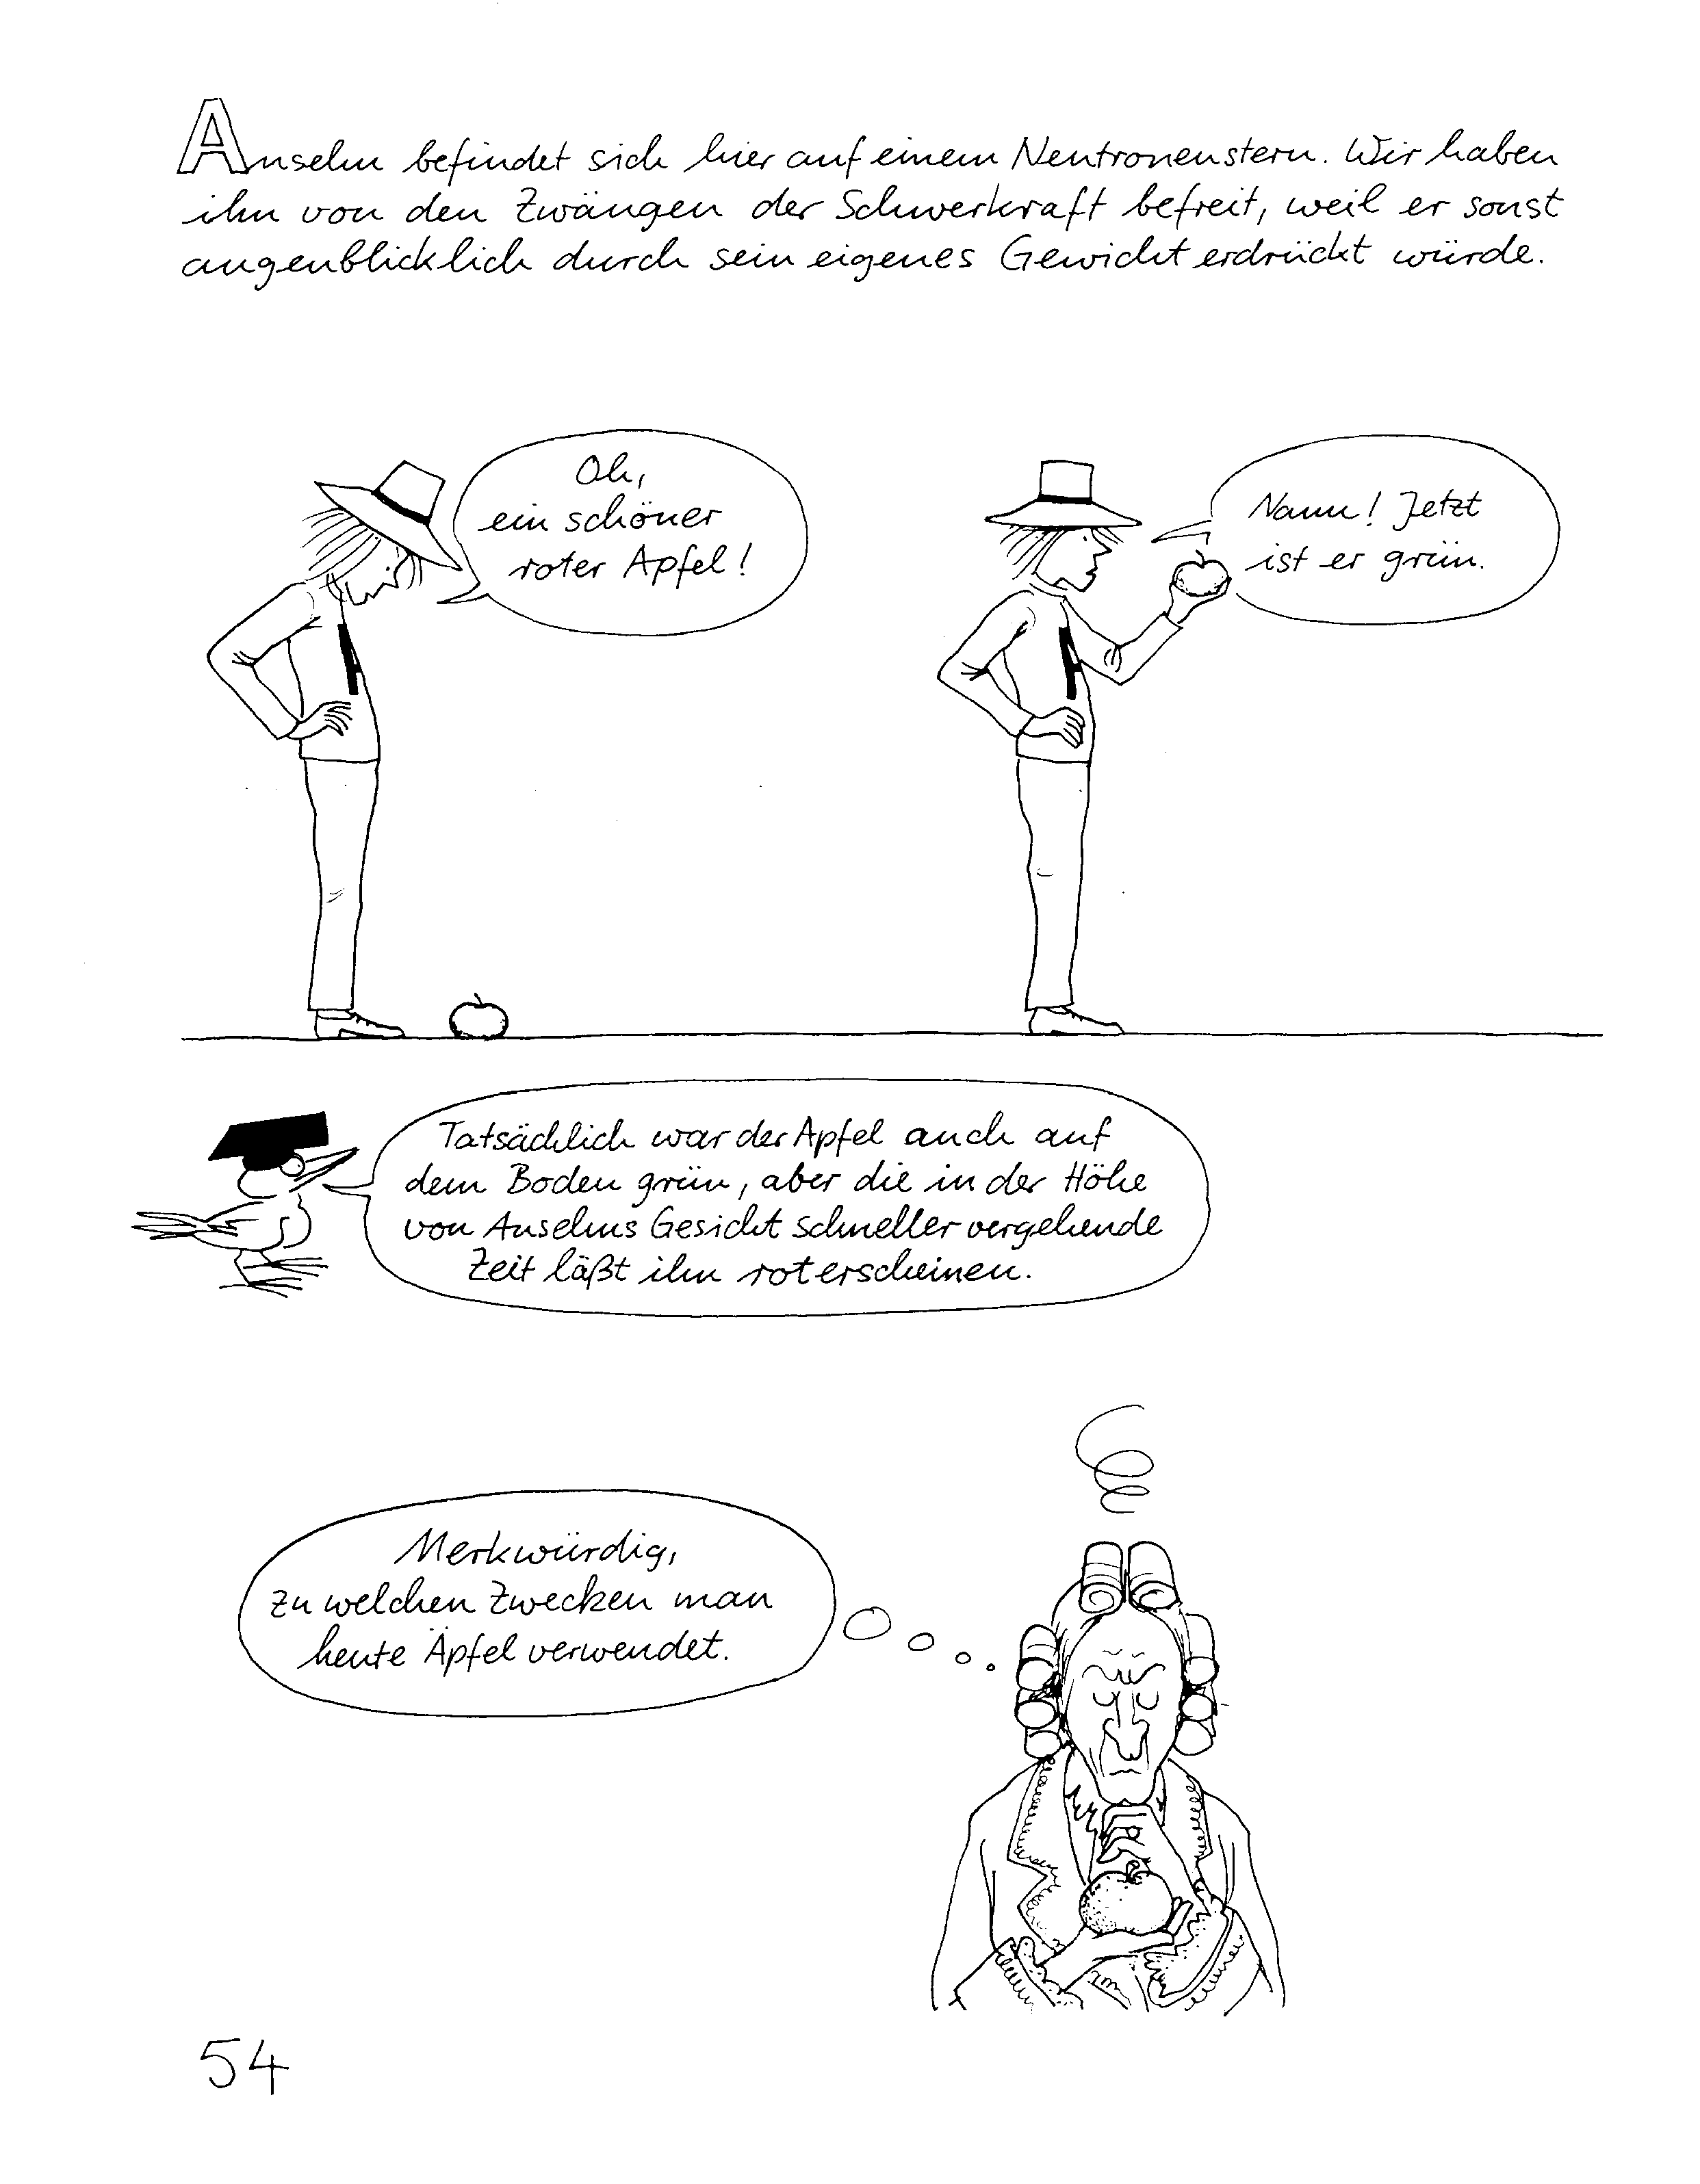 Anselm befindet sich hier auf einem Neutronenstern. Wir haben
ihn von den Zwängen der Schwerkraft befreit, weil er sonst
augenblicklich durch sein eigenes Gewicht erdrückt würde.
Oh,
ein schöner
roter Apfel!
Nanu! Jetzt
ist er grün.
Tatsächlich war der Apfel auch auf
dem Boden grün, aber die in der Höhe
von Anselms Gesicht schneller vergehende
Zeit läßt ihn rot erscheinen.
Merkwürdig,
zu welchen Zwecken man
heute Äpfel verwendet.
54